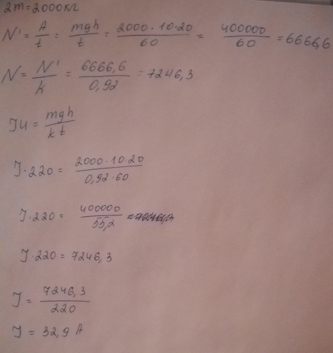 2т=2000кг
N' = A/t = mgh/t = 2000·10·20/60 = 400000/60 = 6666,6
N = N'/k = 6666,6/0,92 = 7246,3
IU = mgh/kt
I·220 = 2000·10·20/0,92·60
I·220 = 400000/55,2
I·220 = 7246,3
I = 7246,3/220
I = 32,9 A